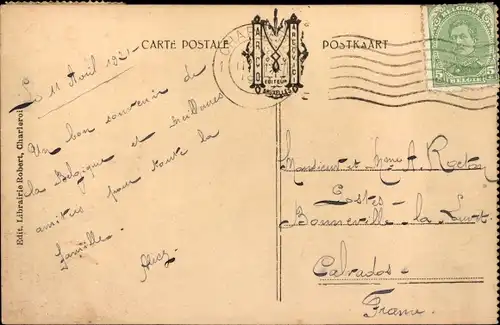 CARTE POSTALE
POSTKAART
BELGIQUE
5 5
BELGIË
EDITEUR
BRUXELLES
Edit. Librairie Robert, Charleroi
Le 11 Août 1921
Un bon souvenir de
la Belgique et meilleures
amitiés pour toute la
famille.
Monsieur et Mme A.
Postes
Bonneville-la-
Calvados
France